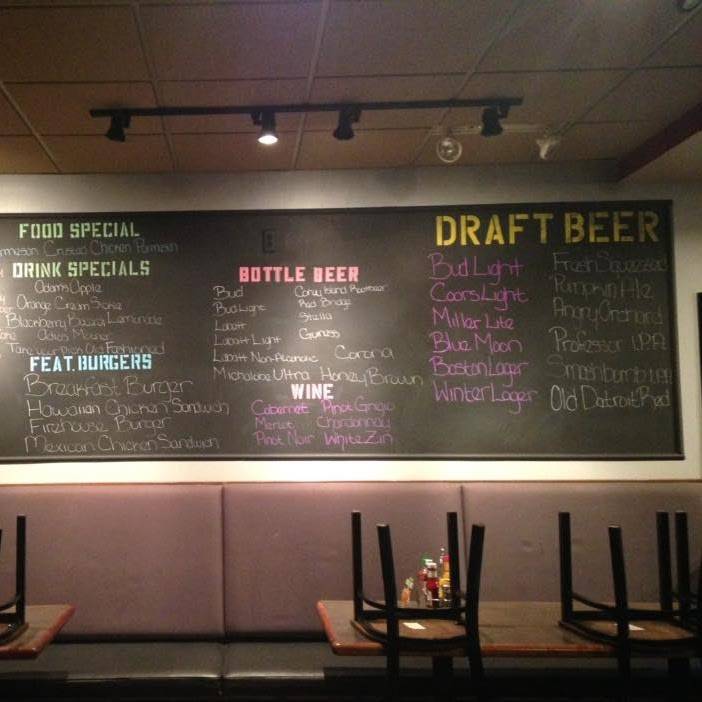 FOOD SPECIAL
Crusted Chicken Parmesan
DRINK SPECIALS
Adams Apple
Orange Cream
Blackberry Lemonade
Old Fashioned
FEAT. BURGERS
Breakfast Burger
Hawaiian Chicken Sandwich
Firehouse Burger
Mexican Chicken Sandwich
BOTTLE BEER
Bud
Bud Light
Labatt
Labatt Light
Labatt Non-Alcoholic
Michalobe Ultra
Coney Island Rootbeer
Red Bridge
Stella
Guness
Corona
Honey Brown
WINE
Cabernet Pinot Grigio
Merlot Chardonnay
Pinot Noir White Zin
DRAFT BEER
Bud Light
Coors Light
Miller Lite
Blue Moon
Boston Lager
Winter Lager
Fresh Squeezed
Pumpkin Ale
Angry Orchard
Professor I.P.A
Smashbomb
Old Detroit Red